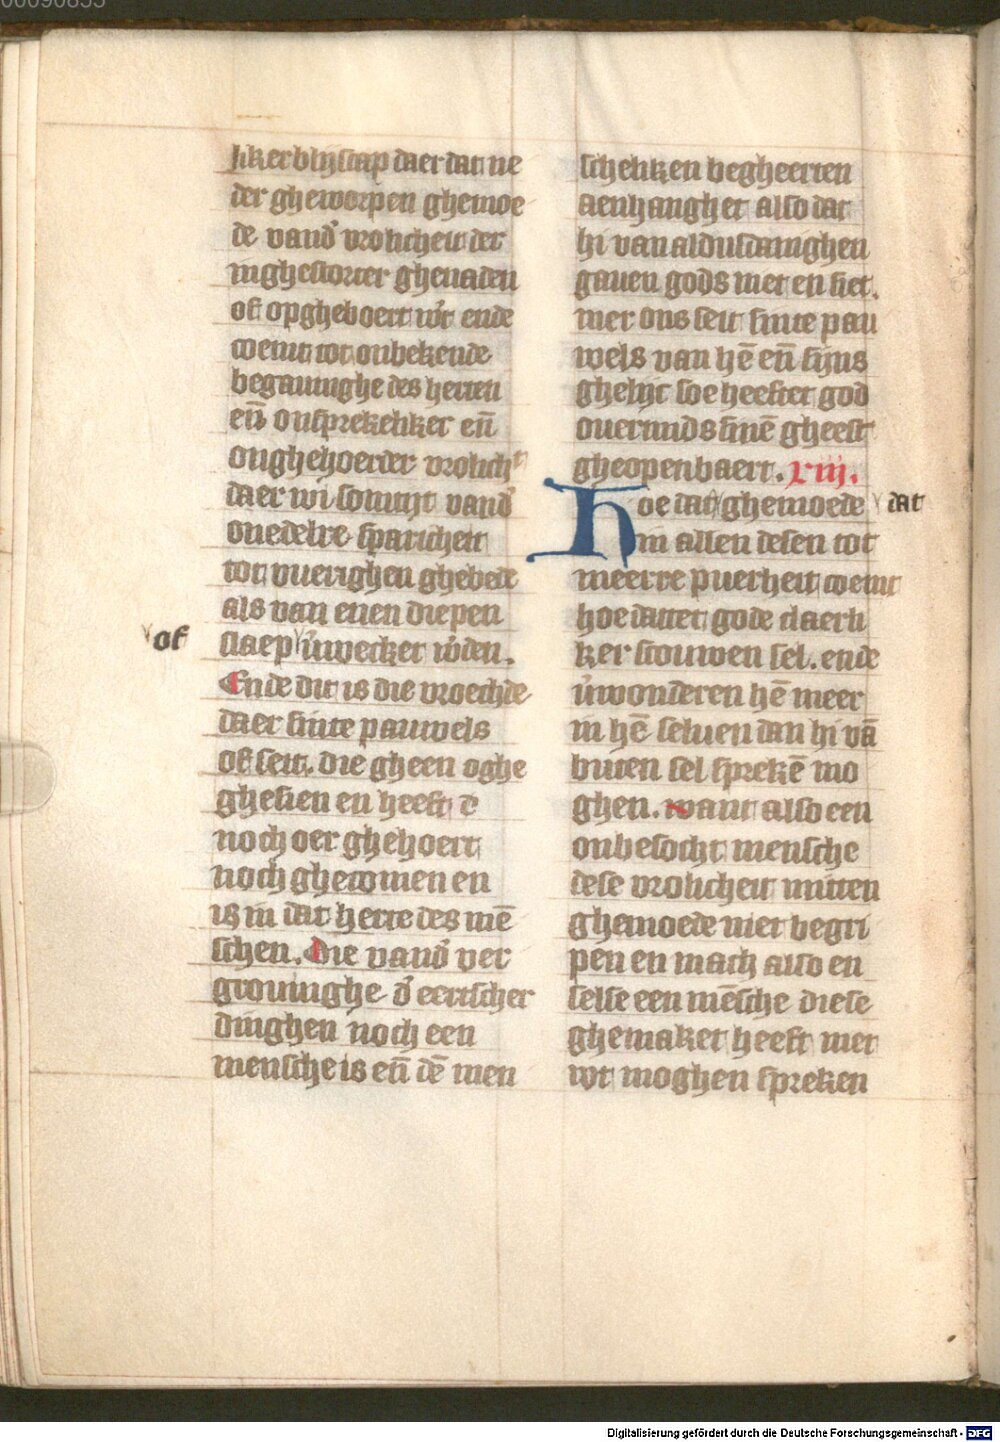 liker blijscap daer dat ne
der gheworpen ghemoe
de vand' vrolicheit der
inghestorter ghenaden
of opgheboert w't ende
coemt tot onbekende
begauinghe des herren
eñ onsprekeliker eñ
onghehoerder vrolich't
daer wi somtijt vand'
onedelre sparicheit
tot vuerighen ghebede
als van enen diepen
of
slaep v'wecket w'den.
Ende dit is die vroechde
daer sinte pauwels
of seit. die gheen oghe
ghesien en heeft
noch oer ghehoert
noch ghecomen en
is in dat herte des mē
schen. Die vand' ver
grouinghe d' eertscher
dinghen noch een
mensche is eñ dē men
scheliken begheerten
aenhanghet also dat
hi van aldusdanighen
gauen gods niet en siet.
mer ons seit sinte pau
wels van hē eñ sijns
ghelijc soe heeftet god
ouermids sinē gheest
gheopenbaert. xiij.
Hoe dat ghemoede dat
in allen desen tot
meerre puerheit coemt
hoe dattet gode claerli
ker scouwen sel. ende
v'wonderen hē meer
in hē seluen dan hi vā
buten sel sprekē mo
ghen. want also een
onbesocht mensche
dese vrolicheit mitten
ghemoede niet begri
pen en mach also en
selse een mēsche diese
ghemaket heeft niet
wt moghen spreken
Digitalisierung gefördert durch die Deutsche Forschungsgemeinschaft - DFG